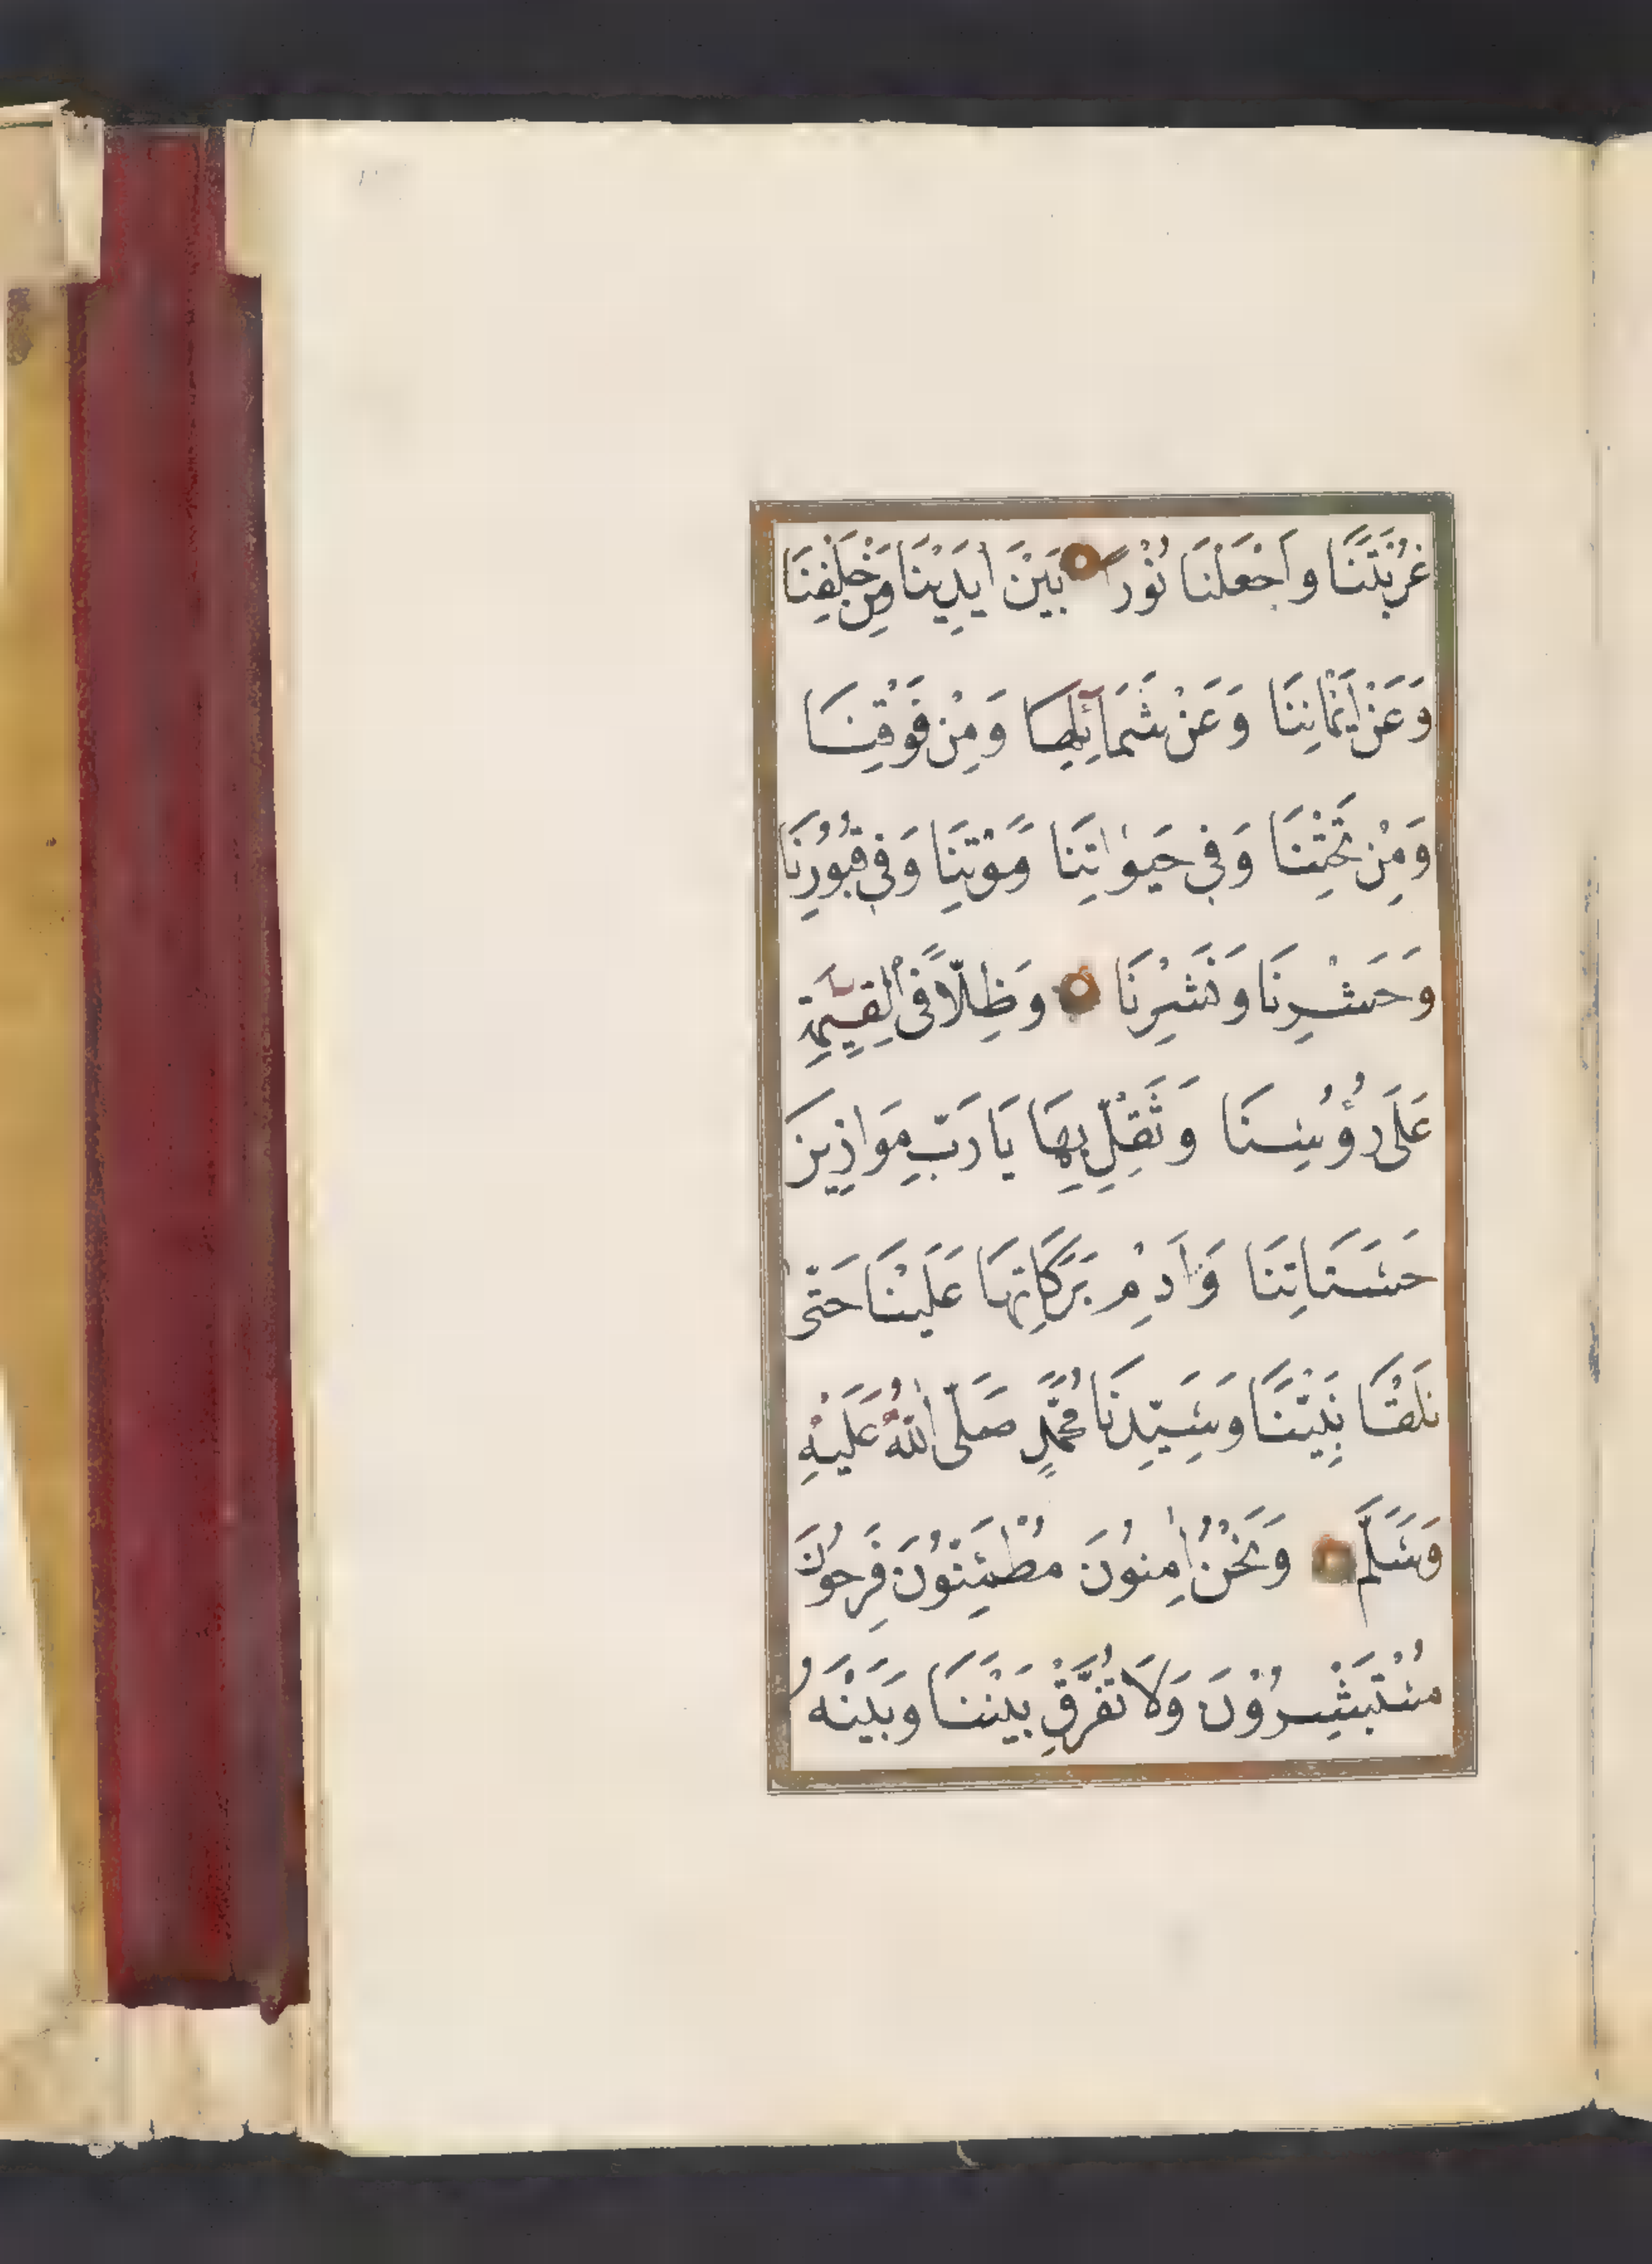 غُرْبَتَنَا وَاجْعَلْنَا نُوْرًا بَيْنَ اَيْدِيْنَا وَمِنْ خَلْفِنَا
وَعَنْ اَيْمَانِنَا وَعَنْ شَمَآئِلِنَا وَمِنْ فَوْقِنَا
وَمِنْ تَحْتِنَا وَفِي حَيٰواتِنَا وَمَوْتِنَا وَفِي قُبُوْرِنَا
وَحَشْرِنَا وَنَشْرِنَا وَظِلًّا فِى الْقِيٰمَةِ
عَلَى رُؤُسِنَا وَثَقِّلْ بِهَا يَا رَبِّ مَوَازِيْنَ
حَسَنَاتِنَا وَاَدِمْ بَرَكَاتِهَا عَلَيْنَا حَتّٰى
نَلْقَا نَبِيَّنَا وَسَيِّدِنَا مُحَمَّدٍ صَلَّى اللهُ عَلَيْهِ
وَسَلَّمَ وَنَحْنُ اٰمِنُونَ مُطْمَئِنُّوْنَ فَرِحُوْنَ
مُسْتَبْشِرُوْنَ وَلَا تُفَرِّقْ بَيْنَنَا وَبَيْنَهُ